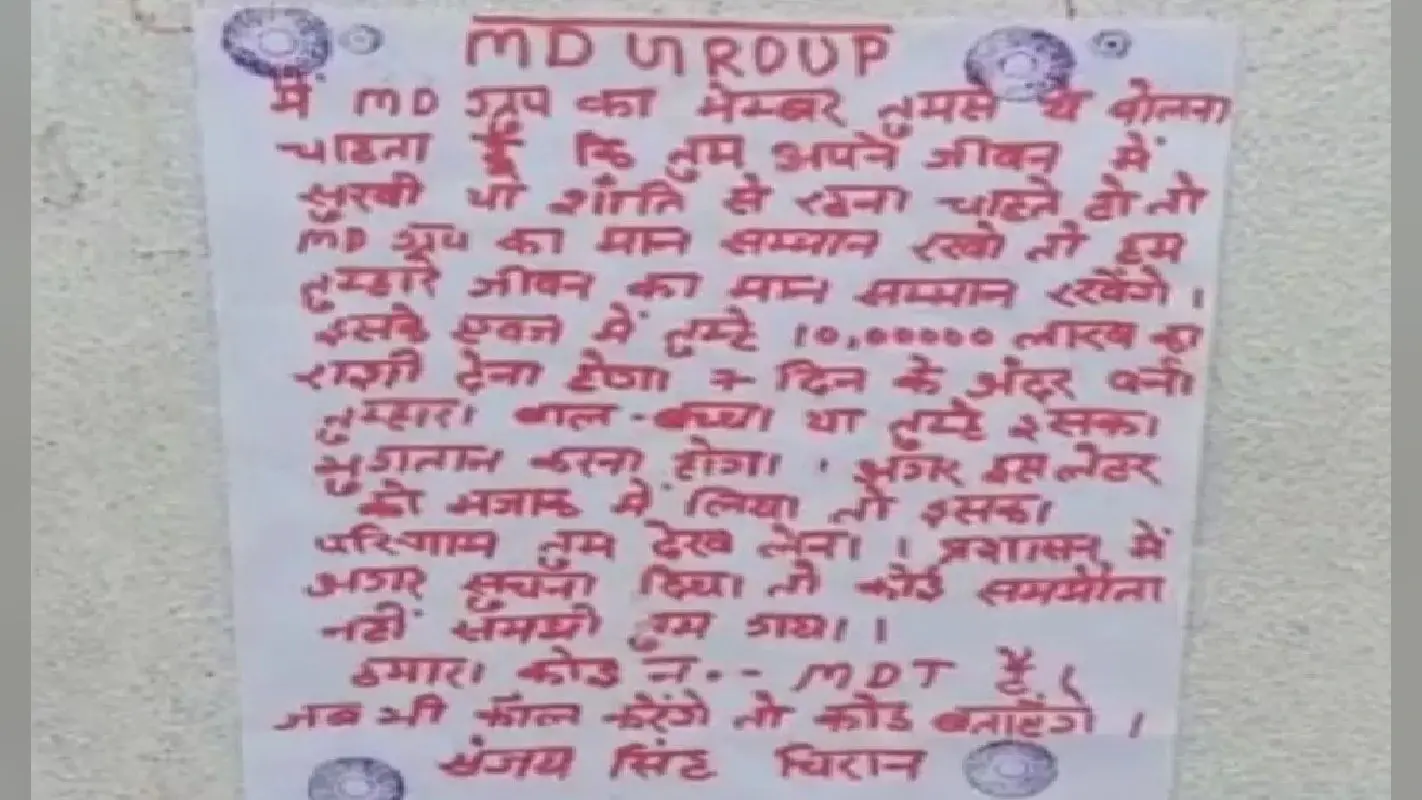 MD GROUP
मैं MD ग्रुप का मेम्बर तुमसे ये बोलना
चाहता हूँ कि तुम अपने जीवन में
सुखी यो शांति से रहना चाहते हो तो
MD ग्रुप का मान सम्मान रखो तो हम
तुम्हारे जीवन का मान सम्मान रखेंगे ।
इसके एवज में तुम्हे 10,00000 लाख का
राशी देना होगा 7 दिन के अंदर वर्ना
तुम्हारा बाल-बच्चा या तुम्हे इसका
भुगतान करना होगा । अगर इस लेटर
को मजाक में लिया तो इसका
परिणाम तुम देख लेना । प्रशासन में
अगर सुचना दिया तो कोई समझौता
नहीं समझो तुम गया ।
हमारा कोड न.-- MDT है।
जब भी कॉल करेंगे तो कोड बताएंगे ।
संजय सिंह चिरान